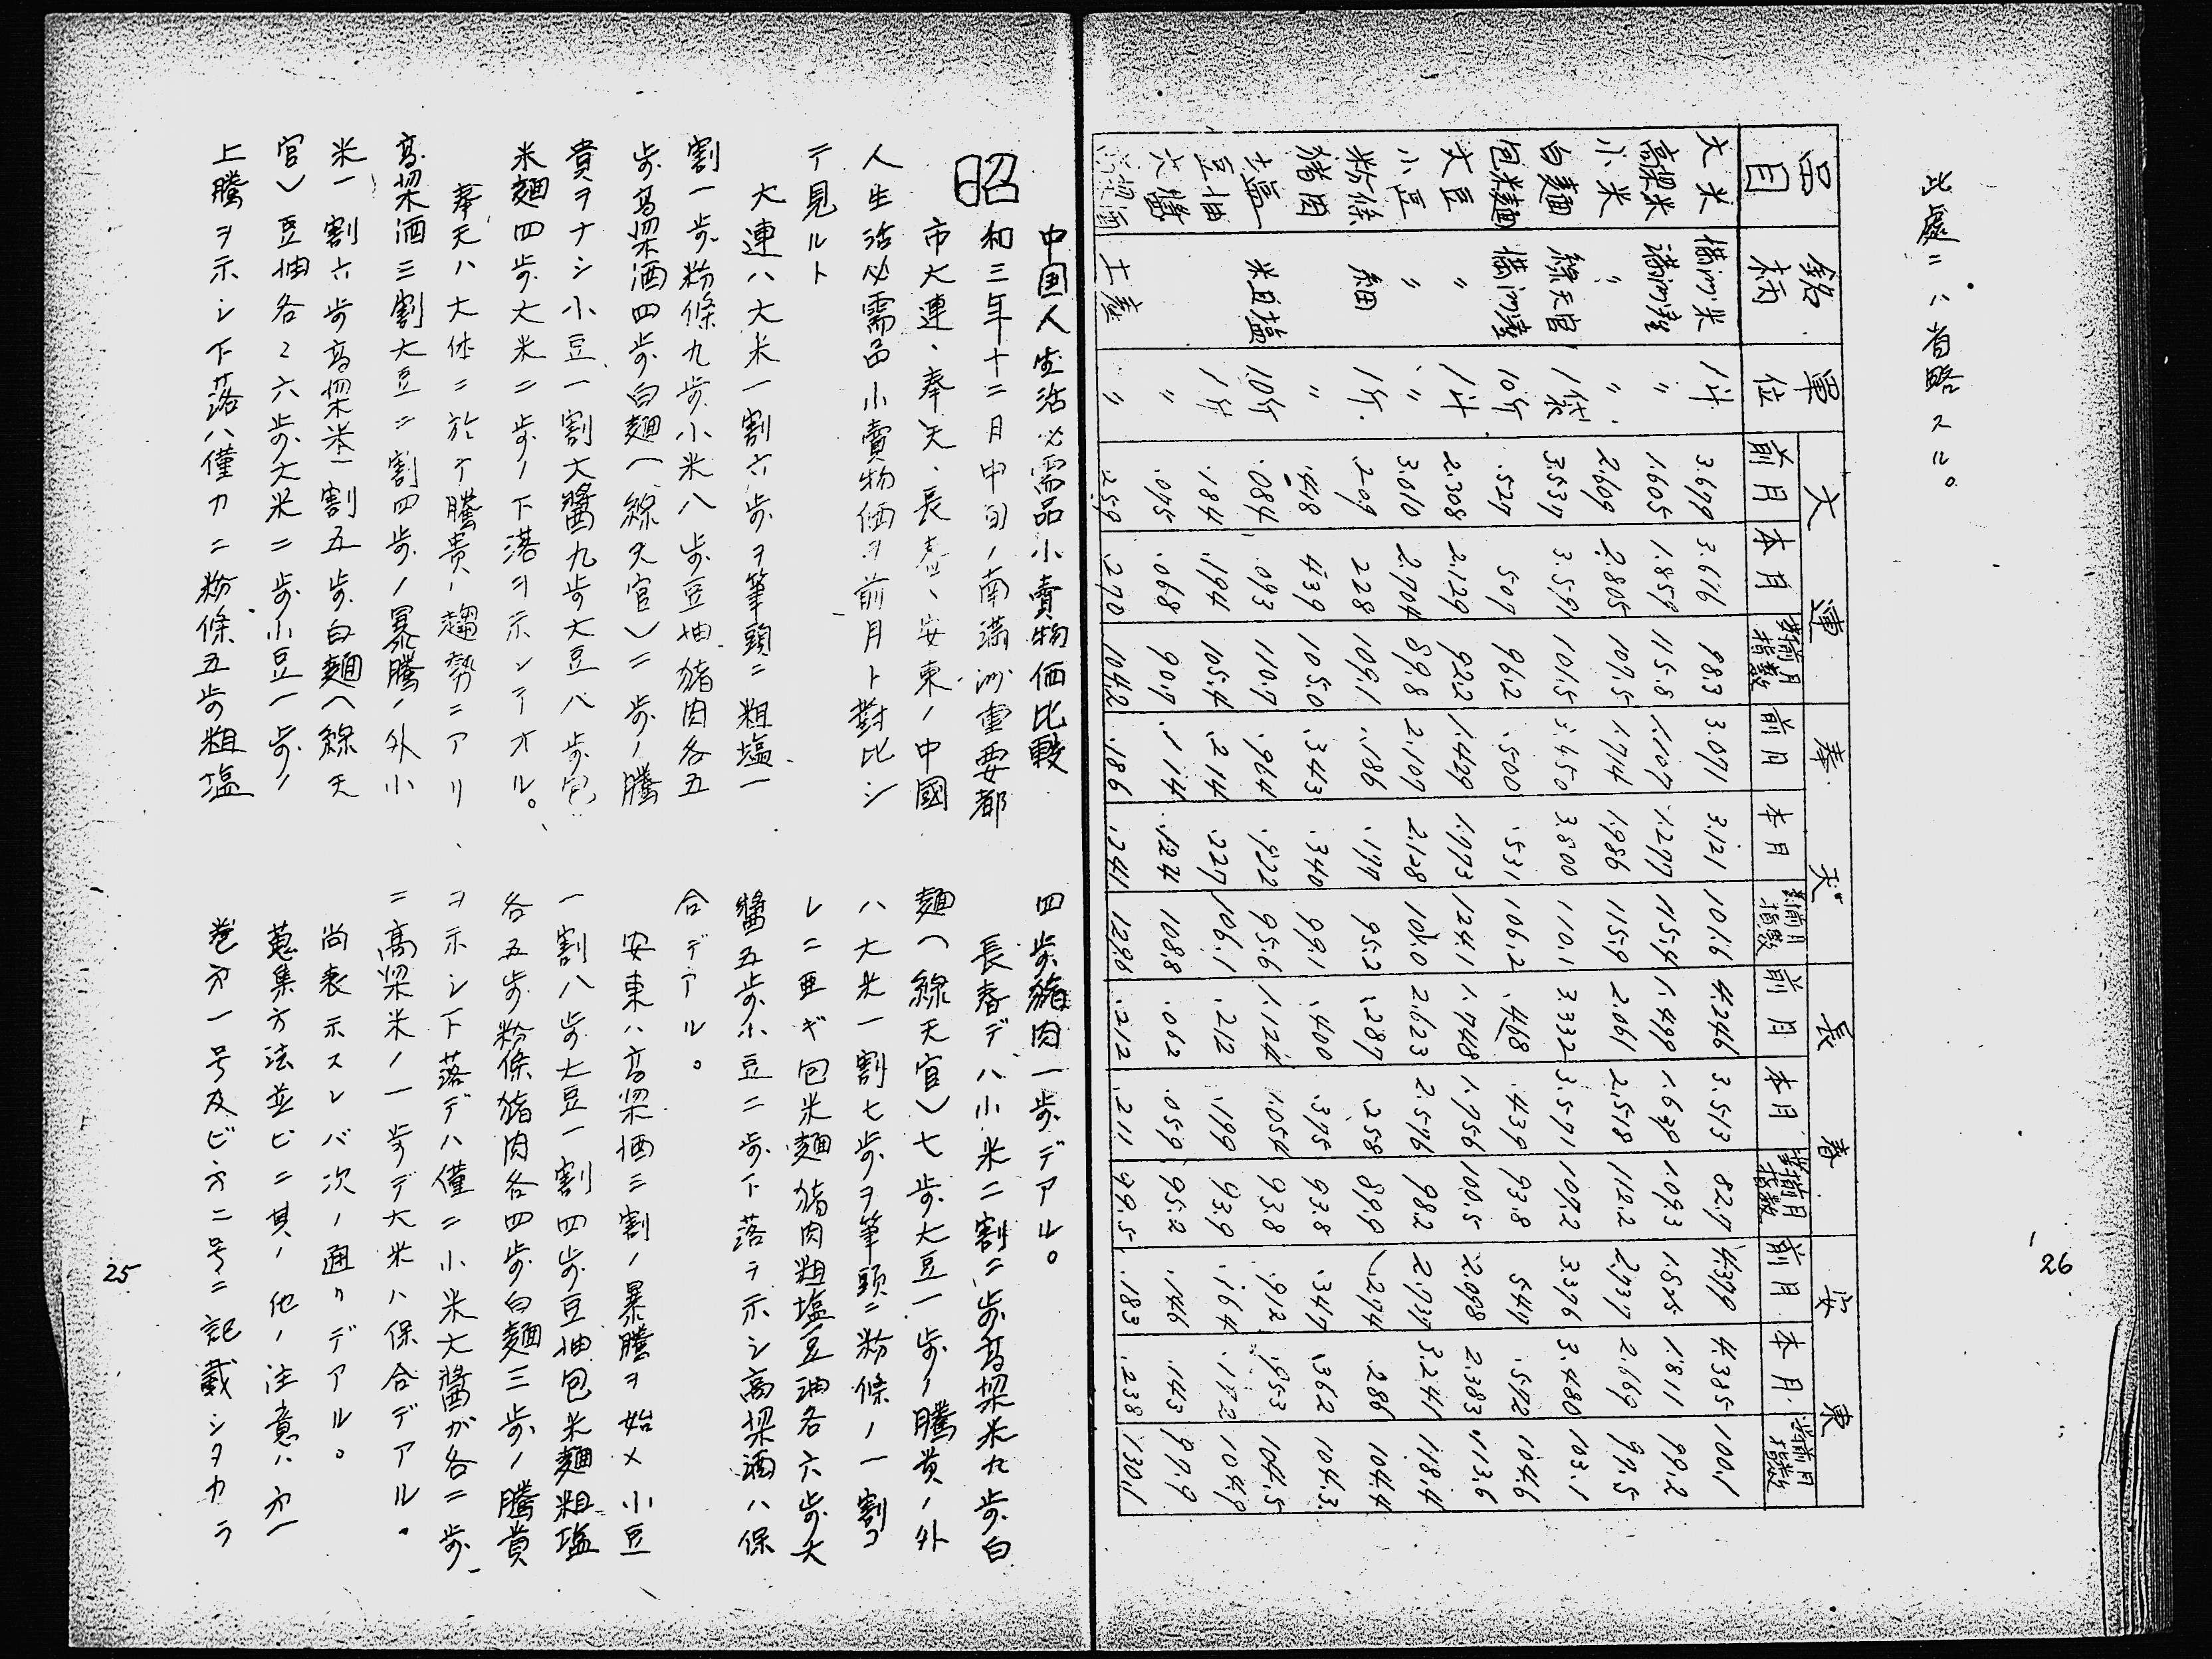 中国人生活必需品小賣物価比較
昭和三年十二月中旬ノ南満洲重要都
市大連、奉天、長春、安東ノ中國
人生活必需品小賣物価ヲ前月ト對比シ
テ見ルト
大連ハ大米一割六歩ヲ筆頭ニ粗塩一
割一歩粉條九歩小米八歩豆油猪肉各五
歩高粱酒四歩白麺(綠天官)二歩ノ騰
貴ヲナシ小豆一割大醬九歩大豆八歩包
米麺四歩大米二歩ノ下落ヲ示シテオル。
奉天ハ大体ニ於テ騰貴ノ趨勢ニアリ、
高粱酒三割大豆二割四歩ノ暴騰ノ外小
米一割六歩高粱米一割五歩白麺(綠天
官)豆油各々六歩大米二歩小豆一歩ノ
上騰ヲ示シ下落ハ僅カニ粉條五歩粗塩
四歩猪肉一歩デアル。
長春デハ小米二割二歩高粱米九歩白
麺(綠天官)七歩大豆一歩ノ騰貴ノ外
ハ大米一割七歩ヲ筆頭ニ粉條ノ一割コ
レニ亜ギ包米麺猪肉粗塩豆油各六歩大
醬五歩小豆二歩下落ヲ示シ高粱酒ハ保
合デアル。
安東ハ高粱酒三割ノ暴騰ヲ始メ小豆
一割八歩大豆一割四歩豆油包米麺粗塩
各五歩粉條猪肉各四歩白麺三歩ノ騰貴
ヲ示シ下落デハ僅ニ小米大醬ガ各二歩
ニ高粱米ノ一歩デ大米ハ保合デアル。
尚表示スレバ次ノ通リデアル。
蒐集方法並ビニ其ノ他ノ注意ハ第一
卷第一号及ビ第二号ニ記載シタカラ
25
此處ニハ省略スル。
品目 銘柄 單位 大連 奉天 長春 安東
前月 本月 對前月指數 前月 本月 對前月指數 前月 本月 對前月指數 前月 本月 對前月指數
大米 満洲米 1斗 3.679 3.616 98.3 3.071 3.121 101.6 4.246 3.513 82.7 4.379 4.385 100.1
高粱米 満洲産 〃 1.605 1.859 115.8 1.107 1.277 115.4 1.499 1.639 109.3 1.825 1.811 99.2
小米 〃 〃 2.609 2.805 107.5 1.714 1.986 115.9 2.061 2.518 112.2 2.737 2.669 97.5
白麺 綠天官 1袋 3.537 3.591 101.5 3.450 3.800 110.1 3.332 3.571 107.2 3.376 3.480 103.1
包米麺 満洲産 10斤 .527 .507 96.2 .500 .531 106.2 .468 .439 93.8 .547 .572 104.6
大豆 〃 1斗 2.308 2.129 92.2 1.429 1.773 124.1 1.748 1.756 100.5 2.098 2.383 113.6
小豆 〃 〃 3.010 2.704 89.8 2.107 2.128 101.0 2.623 2.576 98.2 2.737 3.241 118.4
粉條 細 1斤 .209 .228 109.1 .186 .177 95.2 .287 .258 89.9 .274 .286 104.4
猪肉 〃 .418 .439 105.0 .343 .340 99.1 .400 .375 93.8 .347 .362 104.3
大塩 10斤 .084 .093 110.7 .964 .922 95.6 1.124 1.054 93.8 .912 .953 104.5
豆油 1斤 .184 .194 105.4 .214 .227 106.1 .212 .199 93.9 .164 .172 104.9
大醬 〃 .068 90.7 .114 .124 108.8 .062 .059 95.2 .146 .143 97.9
高粱酒 土産 〃 .259 .270 104.2 .186 .241 129.6 .212 .211 99.5 .183 .238 130.1
26